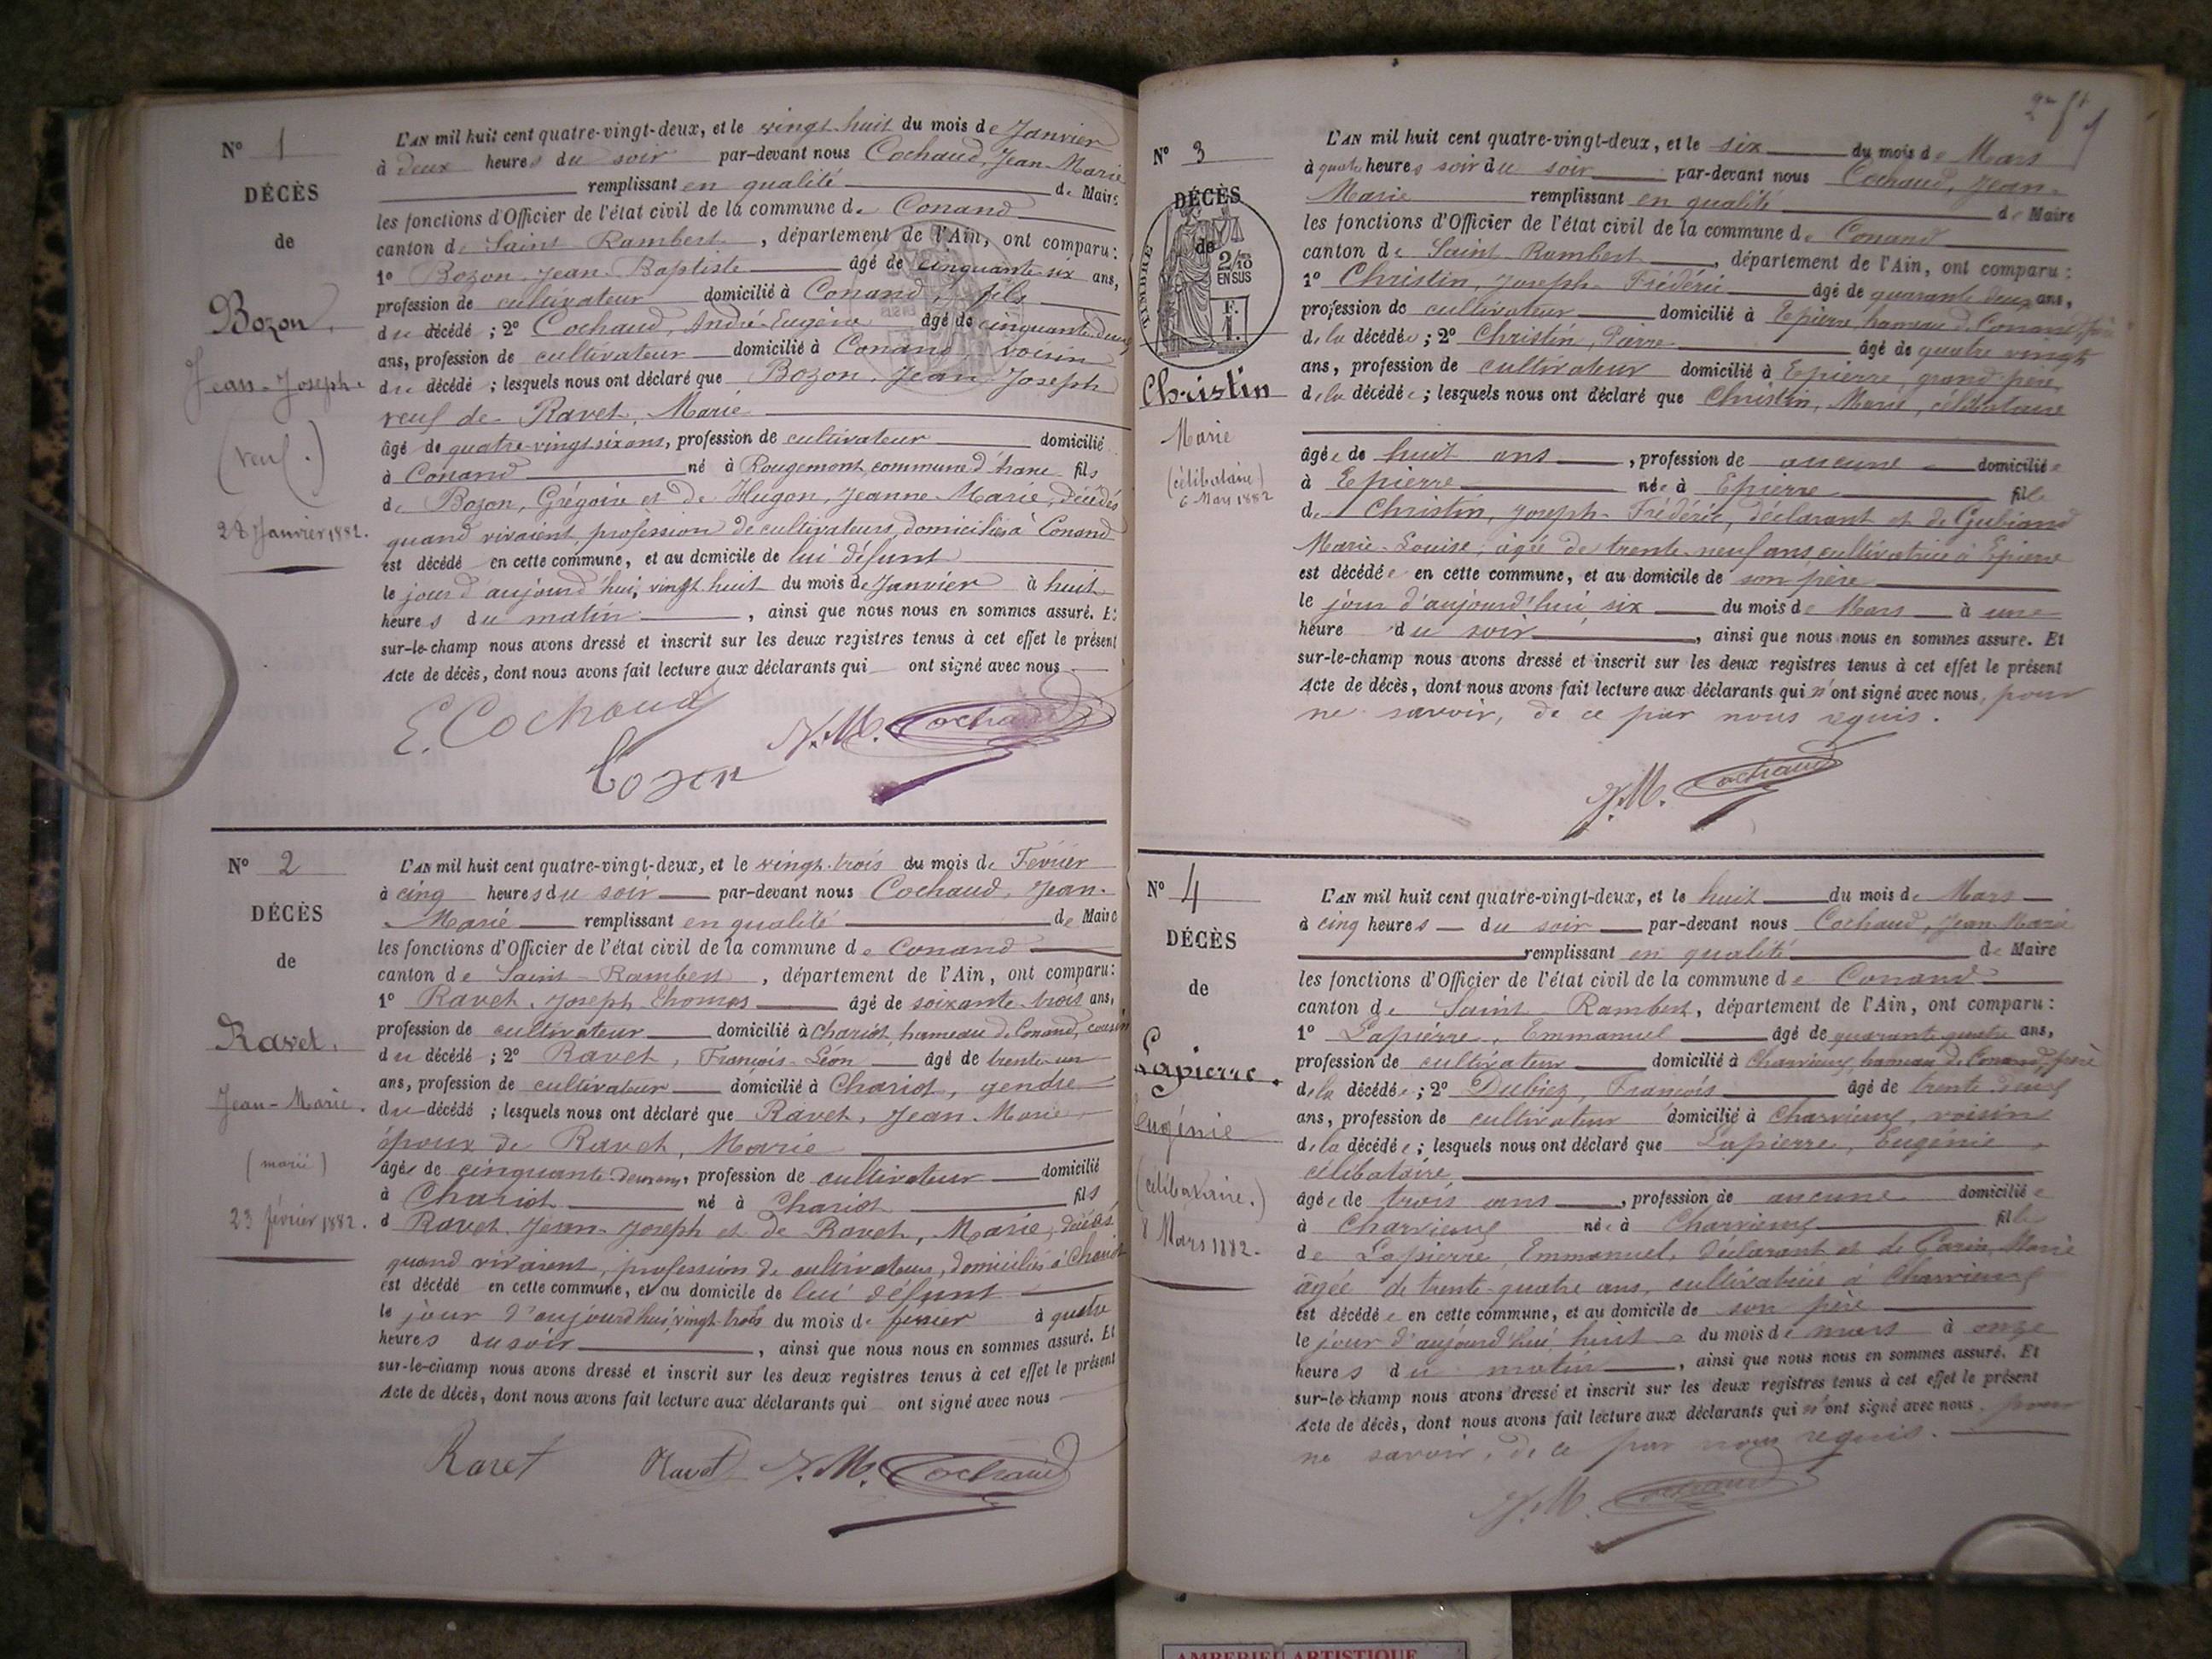 N° 1
DÉCÈS
de
Bozon.
Jean-Joseph.
(veuf.)
28 Janvier 1882.
L'AN mil huit cent quatre-vingt-deux, et le vingt-huit du mois de Janvier
à deux heures du soir par-devant nous Cochaud, Jean-Marie
remplissant en qualité de Maire
les fonctions d'Officier de l'état civil de la commune de Conand
canton de Saint-Rambert, département de l'Ain, ont comparu:
1° Bozon Jean-Baptiste âgé de cinquante-six ans,
profession de cultivateur domicilié à Conand, fils
du décédé ; 2° Cochaud, André-Eugène âgé de cinquante-deux
ans, profession de cultivateur domicilié à Conand voisin
du décédé ; lesquels nous ont déclaré que Bozon, Jean-Joseph
veuf de Ravet, Marie
âgé de quatre-vingt-six ans, profession de cultivateur domicilié
à Conand né à Rougemont, commune d' fils
de Bozon, Grégoire et de Hugon, Jeanne-Marie, décédés
quand vivaient, profession de cultivateurs, domiciliés à Conand
est décédé en cette commune, et au domicile de lui défunt
le jour d'aujourd'hui, vingt-huit du mois de Janvier à huit
heures du matin, ainsi que nous nous en sommes assuré. Et
sur-le-champ nous avons dressé et inscrit sur les deux registres tenus à cet effet le présent
Acte de décès, dont nous avons fait lecture aux déclarants qui ont signé avec nous
E. Cochaud
J.M. Cochaud
Bozon
N° 2
DÉCÈS
de
Ravet.
Jean-Marie.
(marié)
23 février 1882.
L'AN mil huit cent quatre-vingt-deux, et le vingt-trois du mois de Février
à cinq heures du soir par-devant nous Cochaud, Jean-
Marie remplissant en qualité de Maire
les fonctions d'Officier de l'état civil de la commune de Conand
canton de Saint-Rambert, département de l'Ain, ont comparu:
1° Ravet, Joseph Thomas âgé de soixante-trois ans,
profession de cultivateur domicilié à Chariot, hameau de Conand, cousin
du décédé ; 2° Ravet, François-Léon âgé de trente-un
ans, profession de cultivateur domicilié à Chariot, gendre
du décédé ; lesquels nous ont déclaré que Ravet, Jean-Marie
époux de Ravet, Marie
âgé de cinquante-deux ans, profession de cultivateur domicilié
à Chariot né à Chariot fils
d Ravet Jean-Joseph et de Ravet, Marie, décédés
quand vivaient, profession de cultivateurs, domiciliés à Chariot
est décédé en cette commune, et au domicile de lui défunt
le jour d'aujourd'hui, vingt-trois du mois de février à quatre
heures du soir, ainsi que nous nous en sommes assuré. Et
sur-le-champ nous avons dressé et inscrit sur les deux registres tenus à cet effet le présent
Acte de décès, dont nous avons fait lecture aux déclarants qui ont signé avec nous
Ravet Ravet J.M. Cochaud
N° 3
DÉCÈS
de
TIMBRE
2/10
EN SUS
F.
1.
Christin
Marie
(célibataire)
6 Mars 1882
L'AN mil huit cent quatre-vingt-deux, et le six du mois de Mars
à quatre heures soir du soir par-devant nous Cochaud, Jean-
Marie remplissant en qualité de Maire
les fonctions d'Officier de l'état civil de la commune de Conand
canton de Saint-Rambert, département de l'Ain, ont comparu :
1° Christin, Joseph-Frédéric âgé de quarante-deux ans,
profession de cultivateur domicilié à Epierre, hameau de Conand, père
de la décédée ; 2° Christin, Pierre âgé de quatre-vingts
ans, profession de cultivateur domicilié à Epierre, grand-père
de la décédée ; lesquels nous ont déclaré que Christin, Marie, célibataire
âgée de huit ans, profession de aucune domiciliée
à Epierre née à Epierre fille
de Christin, Joseph-Frédéric, déclarant et de Gubiand
Marie-Louise, âgée de trente-neuf ans, cultivatrice à Epierre
est décédée en cette commune, et au domicile de son père
le jour d'aujourd'hui six du mois de Mars à une
heure du soir, ainsi que nous nous en sommes assuré. Et
sur-le-champ nous avons dressé et inscrit sur les deux registres tenus à cet effet le présent
Acte de décès, dont nous avons fait lecture aux déclarants qui n'ont signé avec nous, pour
ne savoir, de ce par nous requis.
J.M. Cochaud
N° 4
DÉCÈS
de
Lapierre.
Eugénie
(célibataire.)
8 Mars 1882.
L'AN mil huit cent quatre-vingt-deux, et le huit du mois de Mars
à cinq heures du soir par-devant nous Cochaud, Jean-Marie
remplissant en qualité de Maire
les fonctions d'Officier de l'état civil de la commune de Conand
canton de Saint-Rambert, département de l'Ain, ont comparu :
1° Lapierre, Emmanuel âgé de quarante-quatre ans,
profession de cultivateur domicilié à Charvieux, hameau de Conand, père
de la décédée ; 2° Dubiez, François âgé de trente-deux
ans, profession de cultivateur domicilié à Charvieux, voisin
de la décédée ; lesquels nous ont déclaré que Lapierre, Eugénie,
célibataire,
âgée de trois ans, profession de aucune domiciliée
à Charvieux née à Charvieux fille
de Lapierre, Emmanuel, déclarant et de Marie
âgée de trente-quatre ans, cultivatrice à Charvieux
est décédée en cette commune, et au domicile de son père
le jour d'aujourd'hui huit du mois de mars à onze
heures du matin, ainsi que nous nous en sommes assuré. Et
sur-le-champ nous avons dressé et inscrit sur les deux registres tenus à cet effet le présent
Acte de décès, dont nous avons fait lecture aux déclarants qui n'ont signé avec nous, pour
ne savoir, de ce par nous requis.
J.M. Cochaud
AMBERIEU ARTISTIQUE